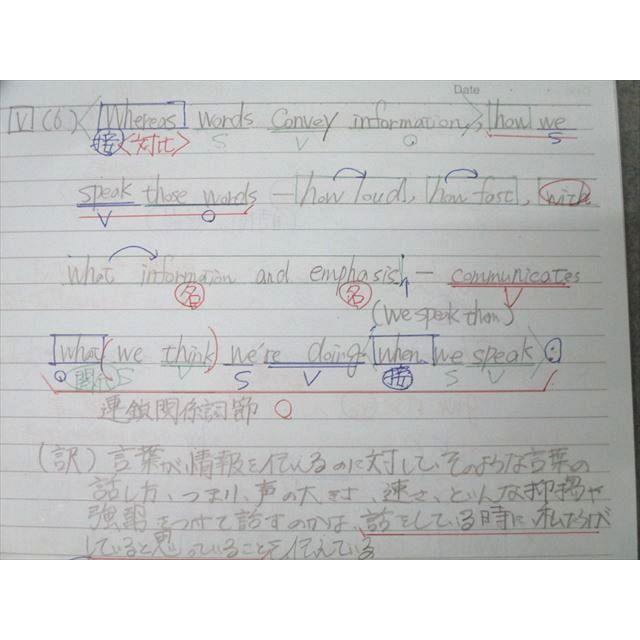 Date
V (6) Whereas words convey information, how we
接 <対比> S V O S
speak those words - how loud, how fast, with
V O
what information and emphasis, - communicates
名 名 V
(we speak them)
what (we think) we're doing when we speak.
O 関代 S V S V 接 S V
連鎖関係詞節 O
(訳) 言葉が情報を伝えるのに対して、そのような言葉の
話し方、つまり、声の大きさ、速さ、どんな抑揚や
強弱をつけて話すのかは、話をしている時に私たちが
していると思っていることを伝えている